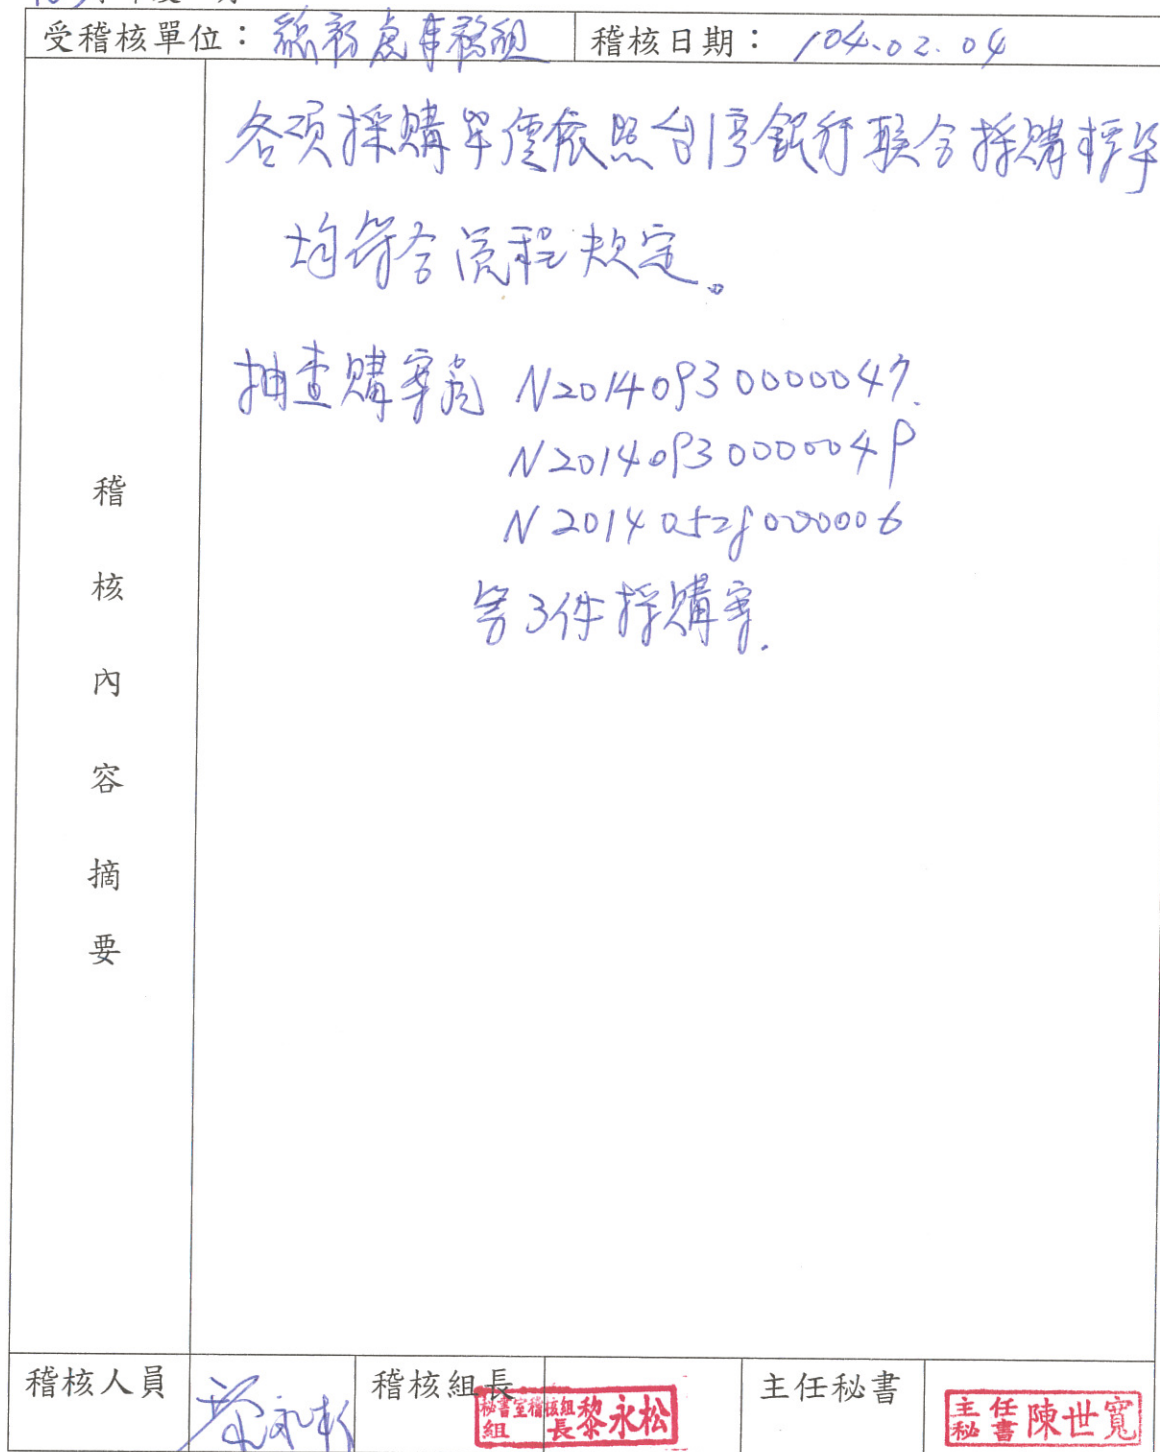 受稽核單位：總務處事務組 稽核日期：104.02.04
各項採購單價依照台灣銀行联合採購標準
均符合流程規定。
抽查購案為 N20140930000047.
N20140930000049
N20140528000006
等3件採購案.
稽核內容摘要
稽核人員 稽核組長 秘書室稽核組組長 黎永松 主任秘書 主任秘書 陳世寬